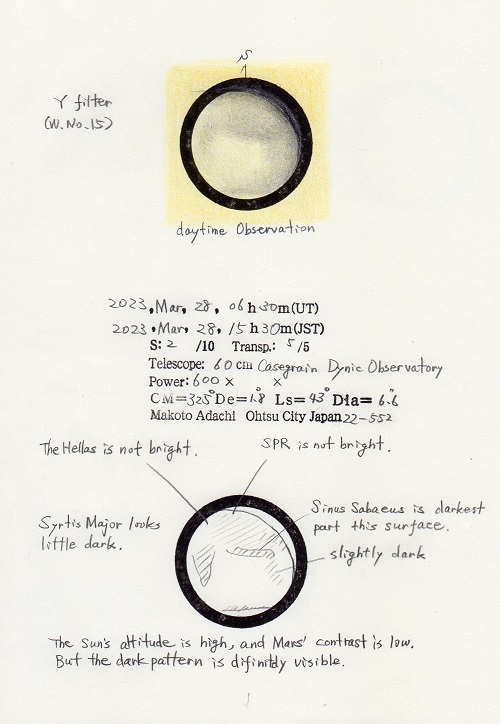 S
Y filter
(W.No.15)
daytime Observation
2023, Mar, 28, 06 h 30m(UT)
2023, Mar, 28, 15 h 30m(JST)
S: 2 /10 Transp.: 5 /5
Telescope: 60 cm Casegrain Dynic Observatory
Power: 600 × ×
CM=325° De=1.8° Ls=43° Dia=6.6"
Makoto Adachi Ohtsu City Japan 22-552
The Hellas is not bright.
SPR is not bright.
Syrtis Major looks
little dark.
Sinus Sabaeus is darkest
part this surface.
slightly dark
The Sun's altitude is high, and Mars' contrast is low.
But the dark pattern is difinitly visible.